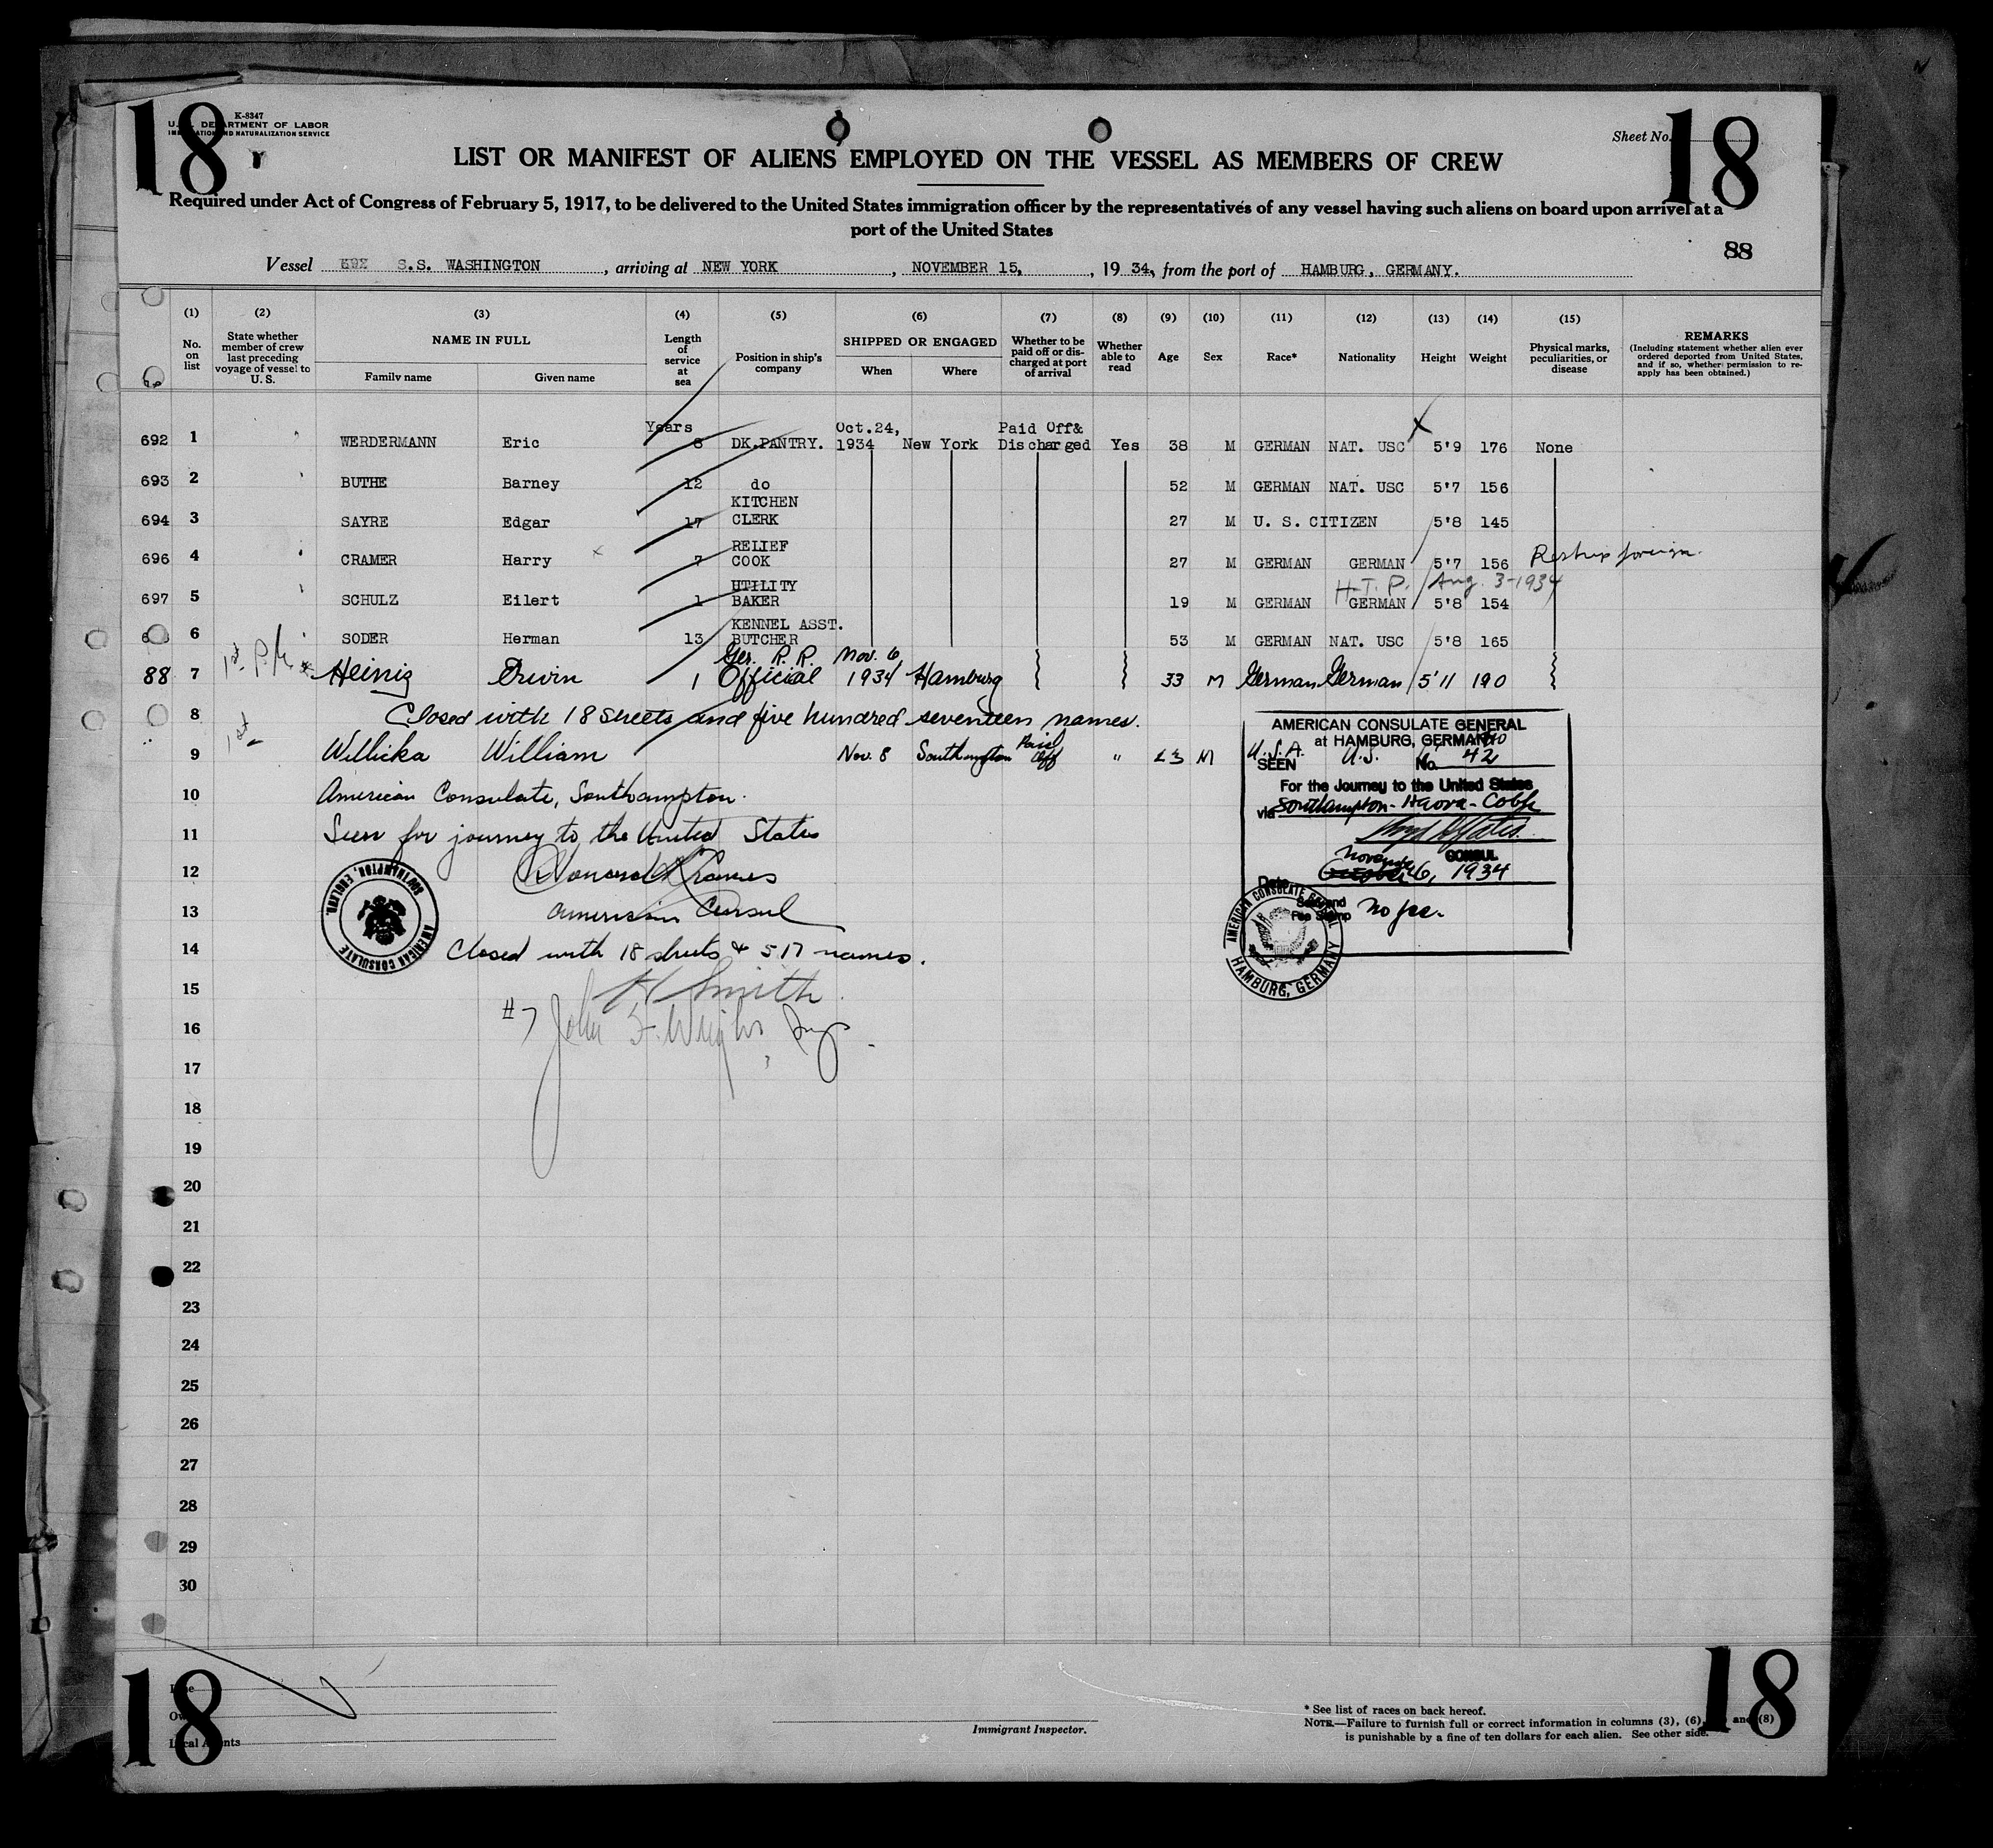 18 18
K-8347
U. S. DEPARTMENT OF LABOR
IMMIGRATION AND NATURALIZATION SERVICE
Sheet No.
LIST OR MANIFEST OF ALIENS EMPLOYED ON THE VESSEL AS MEMBERS OF CREW
Required under Act of Congress of February 5, 1917, to be delivered to the United States immigration officer by the representatives of any vessel having such aliens on board upon arrival at a
port of the United States
88
Vessel S.S. WASHINGTON, arriving at NEW YORK, NOVEMBER 15, 1934, from the port of HAMBURG, GERMANY.
(1) (2) (3) (4) (5) (6) (7) (8) (9) (10) (11) (12) (13) (14) (15)
No. on list
State whether member of crew last preceding voyage of vessel to U. S.
NAME IN FULL
Family name Given name
Length of service at sea
Position in ship's company
SHIPPED OR ENGAGED
When Where
Whether to be paid off or discharged at port of arrival
Whether able to read
Age Sex Race* Nationality Height Weight
Physical marks, peculiarities, or disease
REMARKS
(Including statement whether alien ever ordered deported from United States, and if so, whether permission to re-apply has been obtained.)
Years Oct.24, Paid Off&
692 1 WERDERMANN Eric 8 DK.PANTRY. 1934 New York Discharged Yes 38 M GERMAN NAT. USC 5'9 176 None
693 2 BUTHE Barney 12 do 52 M GERMAN NAT. USC 5'7 156
KITCHEN
694 3 SAYRE Edgar 17 CLERK 27 M U. S. CITIZEN 5'8 145
RELIEF
696 4 CRAMER Harry 7 COOK 27 M GERMAN GERMAN 5'7 156 Reship foreign.
UTILITY H.T.P. Aug. 3-1934
697 5 SCHULZ Eilert 1 BAKER 19 M GERMAN GERMAN 5'8 154
KENNEL ASST.
6 SODER Herman 13 BUTCHER 53 M GERMAN NAT. USC 5'8 165
1st Ger. R. R. Nov. 6
88 7 Heinig Erwin 1 Official 1934 Hamburg 33 M German German 5'11 190
8 Closed with 18 sheets and five hundred seventeen names.
1st
9 Willicka William Nov. 8 Southampton Paid Off " 23 M U.S.A. U.S.
10 American Consulate, Southampton.
11 Seen for journey to the United States
12
13 American Consul
14 Closed with 18 sheets & 517 names.
15 H Smith.
16 #7 John F. Wright Insp.
17
18
19
20
21
22
23
24
25
26
27
28
29
30
AMERICAN CONSULATE
SOUTHAMPTON, ENGLAND.
AMERICAN CONSULATE GENERAL
at HAMBURG, GERMANY
SEEN No. 42
For the Journey to the United States
via Southampton - Havre - Cobh
CONSUL
Date November 6, 1934
Seal and
Fee Stamp No fee.
AMERICAN CONSULATE GENERAL
HAMBURG, GERMANY
18 18
Line
Owners
Local Agents
Immigrant Inspector.
* See list of races on back hereof.
NOTE.—Failure to furnish full or correct information in columns (3), (6), and (8)
is punishable by a fine of ten dollars for each alien. See other side.